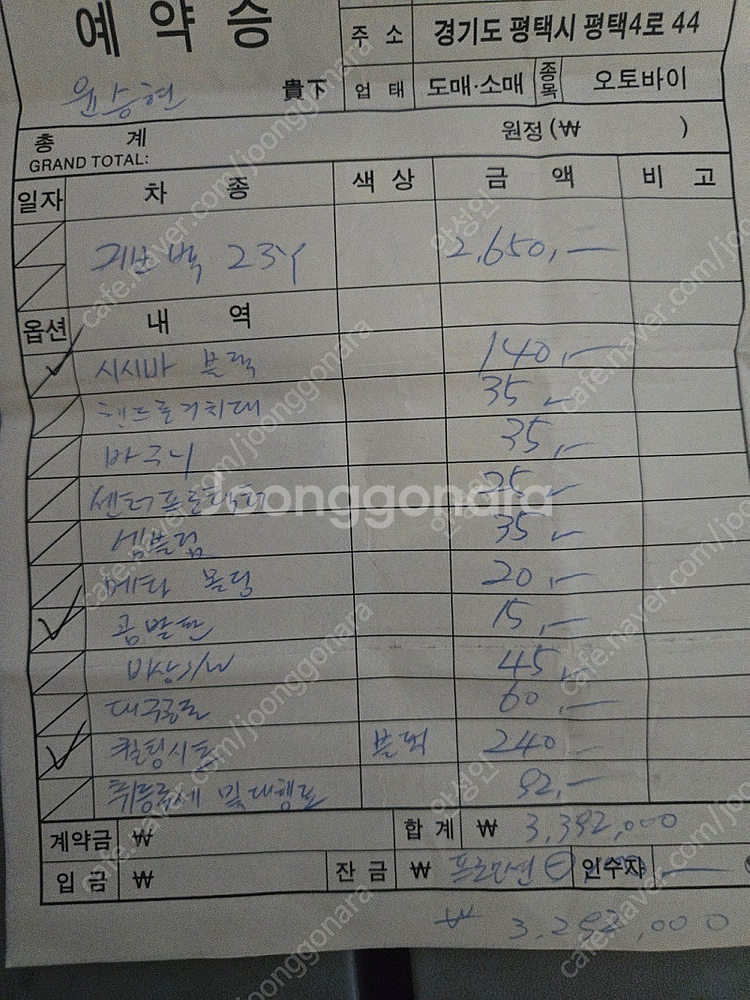 예약증
주소 경기도 평택시 평택4로 44
윤승현 貴下 업태 도매·소매 종목 오토바이
총계 원정 (₩ )
GRAND TOTAL:
일자 차종 색상 금액 비고
23Y 2,650,—
옵션 내역
시시바 블랙 140,—
핸드폰거치대 35,—
바구니 35,—
센터프로텍터 25,—
엠블럼 35,—
메타 몰딩 20,—
곰발판 15,—
비상S/W 45,—
대국공료 60,—
퀼팅시트 블랙 240
취등록세 및 대행료 92,—
계약금 ₩ 합계 ₩ 3,392,000
입금 ₩ 잔금 ₩ 프로모션 ⊖ 인수자
₩ 3,292,000
joonggonara
cafe.naver.com/joonggonara
안성인